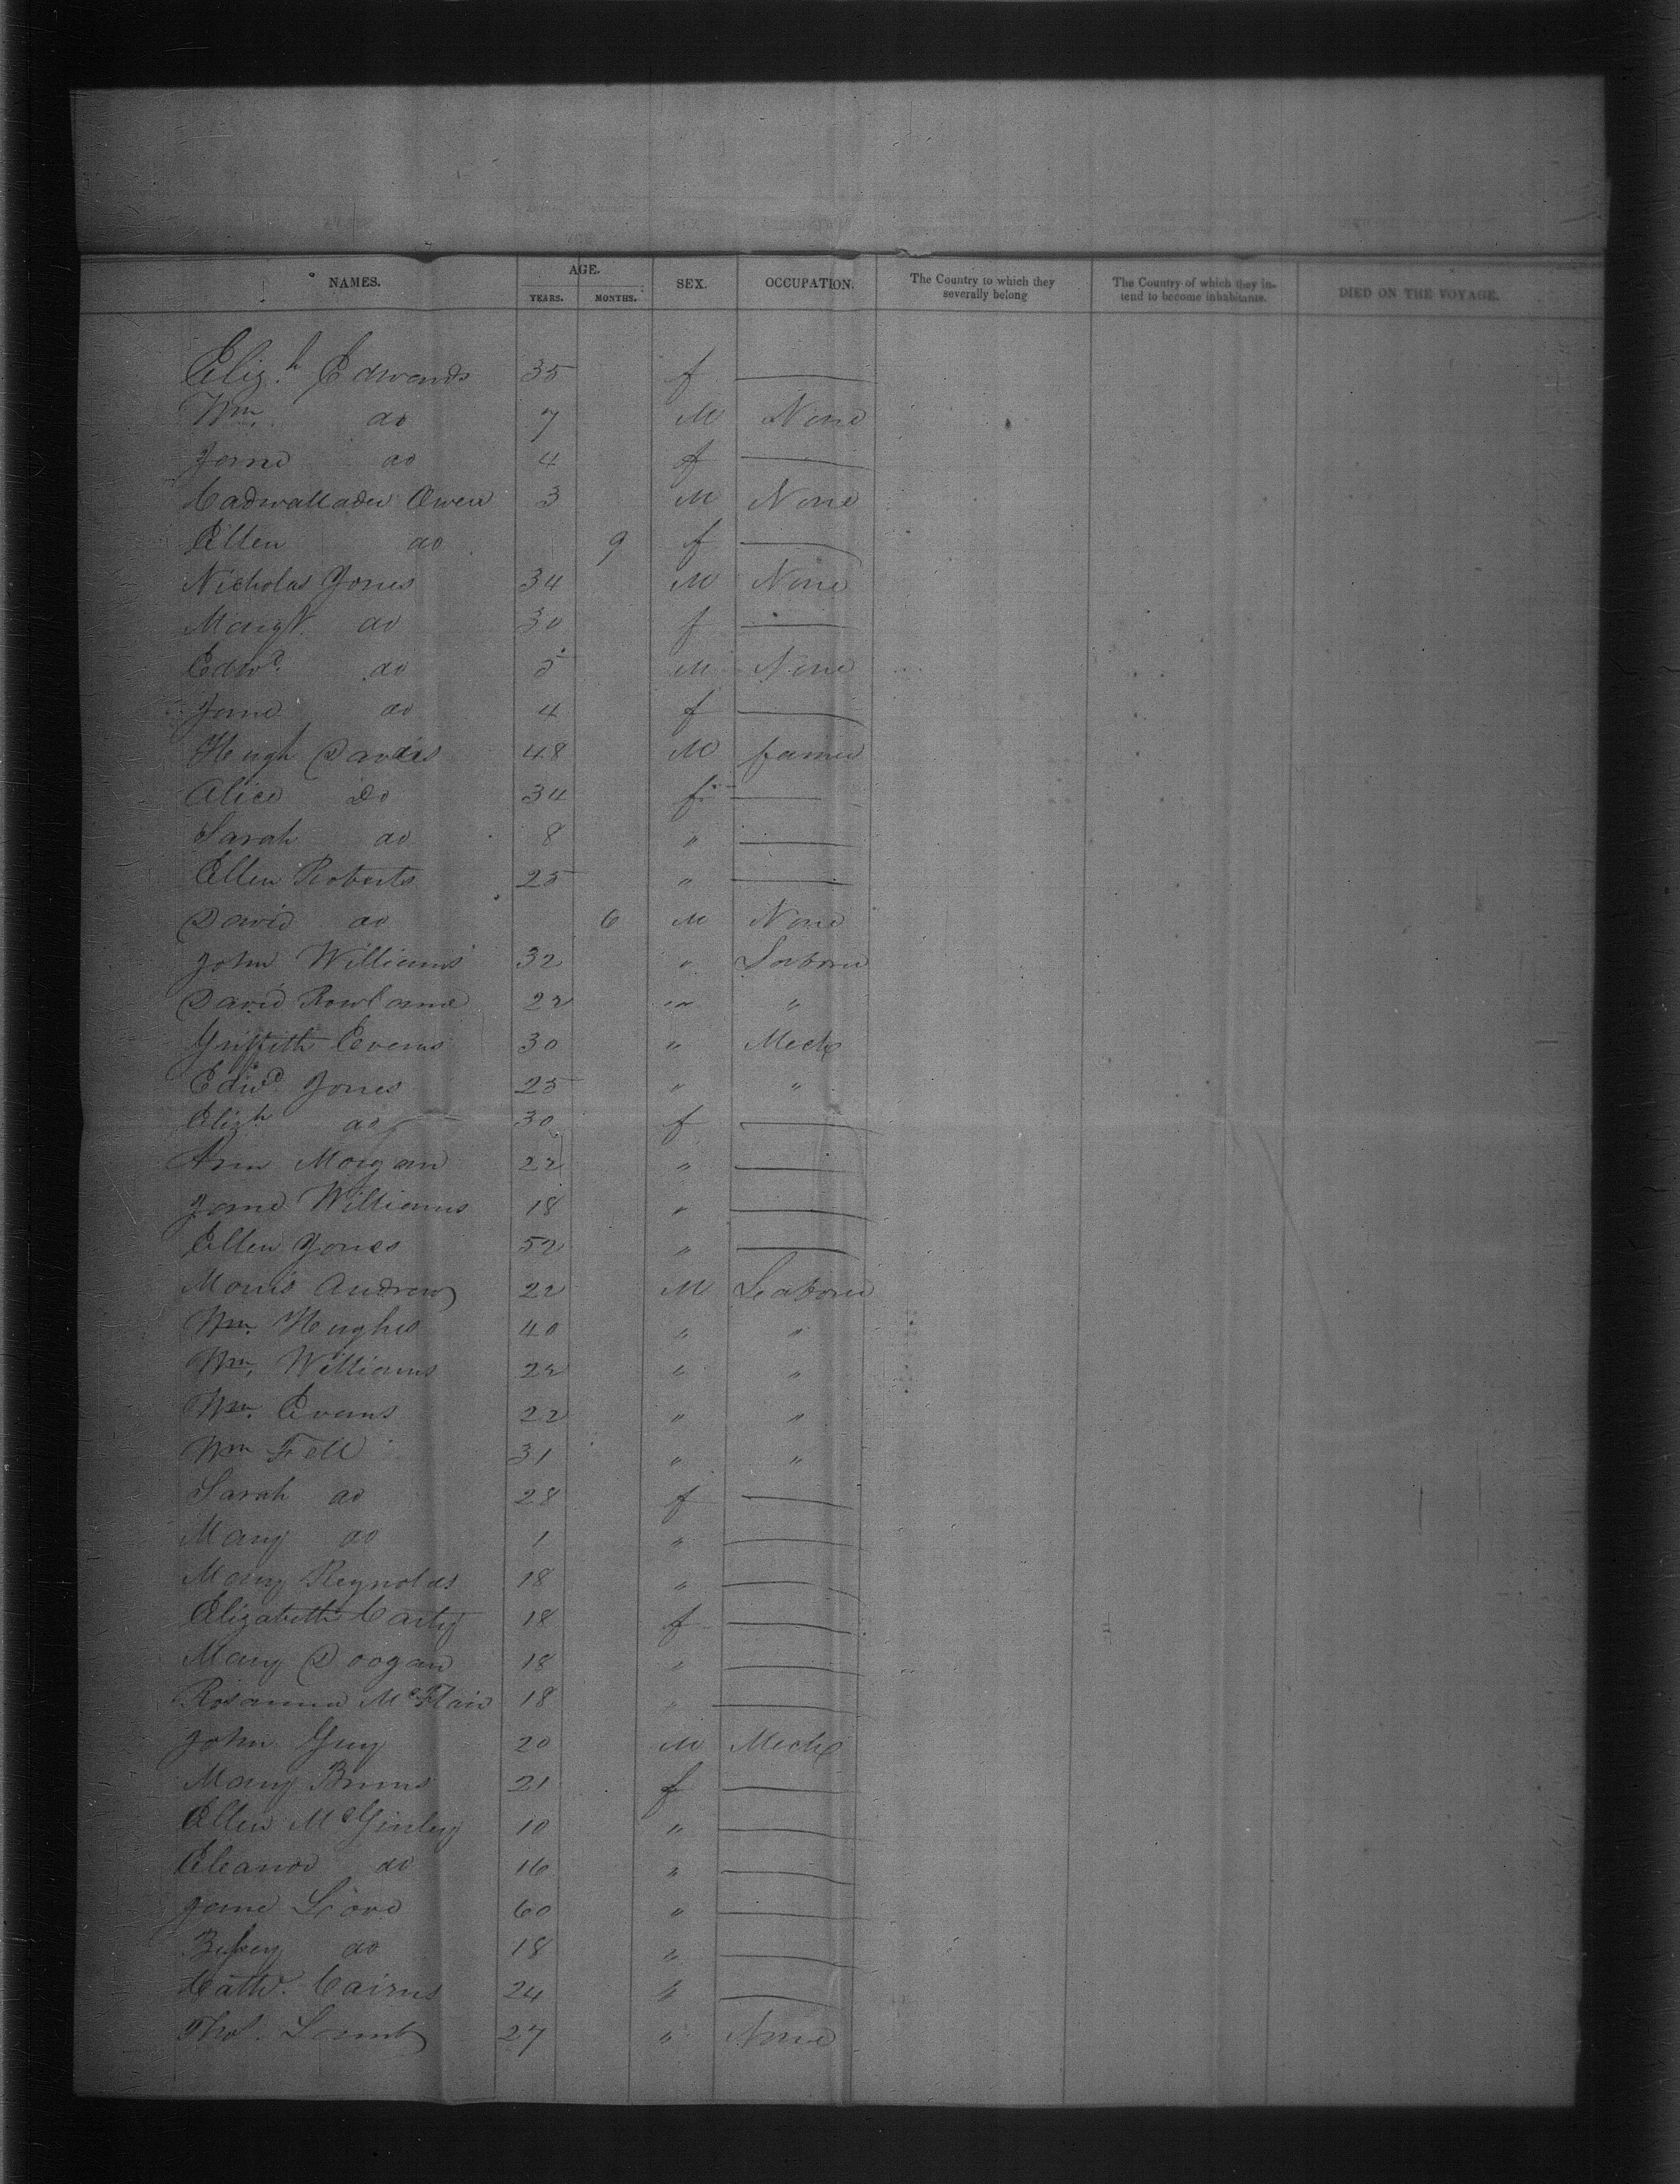 NAMES. AGE. YEARS. MONTHS. SEX. OCCUPATION. The Country to which they severally belong The Country of which they intend to become inhabitants. DIED ON THE VOYAGE.
Eliz.h Edwards 35 f —
Wm. do 7 M None
Jane do 4 f —
Cadwallader Owen 3 M None
Ellen do 9 f —
Nicholas Jones 34 M None
Margt. do 30 f —
Edwd. do 5 M None
Jane do 4 f —
Hugh Davies 48 M farmer
Alice Do 34 f —
Sarah do 8 " —
Ellen Roberts 25 " —
David do 6 M None
John Williams 32 " Laborer
David Rowland 22 " "
Griffith Evans 30 " Mech
Edwd Jones 25 " "
Elizh do 30 f —
Ann Morgan 22 " —
Jane Williams 18 " —
Ellen Jones 52 " —
Morris Andrew 22 M Laborer
Wm. Hughes 40 " "
Wm. Williams 22 " "
Wm. Evans 22 " "
Wm Fell 31 " "
Sarah do 28 f —
Mary do 1 " —
Mary Reynolds 18 " —
Elizabeth Carty 18 f —
Mary Doogan 18 " —
Rosanna 18 " —
John Guy 20 M Mech
Mary Burns 21 f —
Ellen McGinley 10 " —
Eleanor do 16 " —
Jane 60 " —
Bessey do 18 " —
Cath. Cairns 24 " —
Thos. Lamb 27 " None